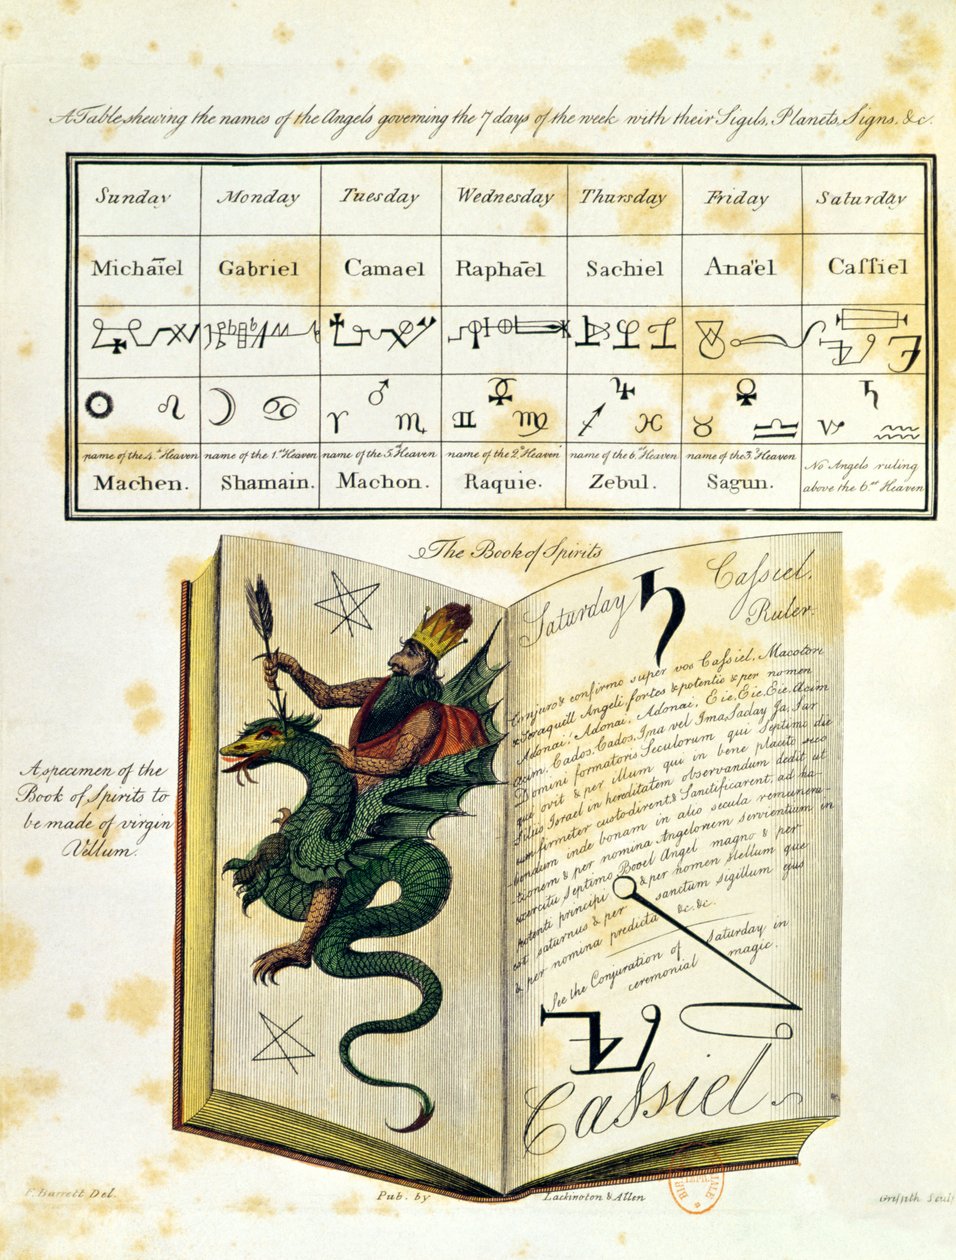 A Table shewing the names of the Angels governing the 7 days of the week with their Sigils, Planets, Signs, &c.
Sunday Monday Tuesday Wednesday Thursday Friday Saturday
Michaïel Gabriel Camael Raphaël Sachiel Anaël Caſſiel
name of the 4.th Heaven name of the 1.st Heaven name of the 5.th Heaven name of the 2.d Heaven name of the 6.th Heaven name of the 3.d Heaven No Angels ruling
above the 6.th Heaven
Machen. Shamain. Machon. Raquie. Zebul. Sagun.
The Book of Spirits
Saturday ♄ Caſsiel.
Ruler.
Conjuro & confirmo super vos Caſsiel, Macoton
& Seraquiel Angeli, fortes & potentis & per nomen
Adonai, Adonai, Adonai, Eie, Eie, Eie, Acim
Acim, Cados, Cados, Ima vel Ima, Saday Ja, Sar
Domini formatoris Seculorum qui Septimo die
quievit & per illum qui in bene placito suo
filius Israel in hereditatem observandum dedit ut
eum firmiter custodirent & Sanctificarent, ad ha-
bendum inde bonam in alio secula remunera-
tionem & per nomina Angelorum servientium in
exercitu Septimo Booel Angel magno &
potenti principi & per nomen stellum que
est saturnus & per sanctum sigillum ejus
& per nomina predicta &c. &c.
See the Conjuration of Saturday in
ceremonial magic.
Caſsiel
A specimen of the
Book of Spirits to
be made of virgin
Vellum.
F. Barrett Del. Pub. by Lackington & Allen Griffith Sculp